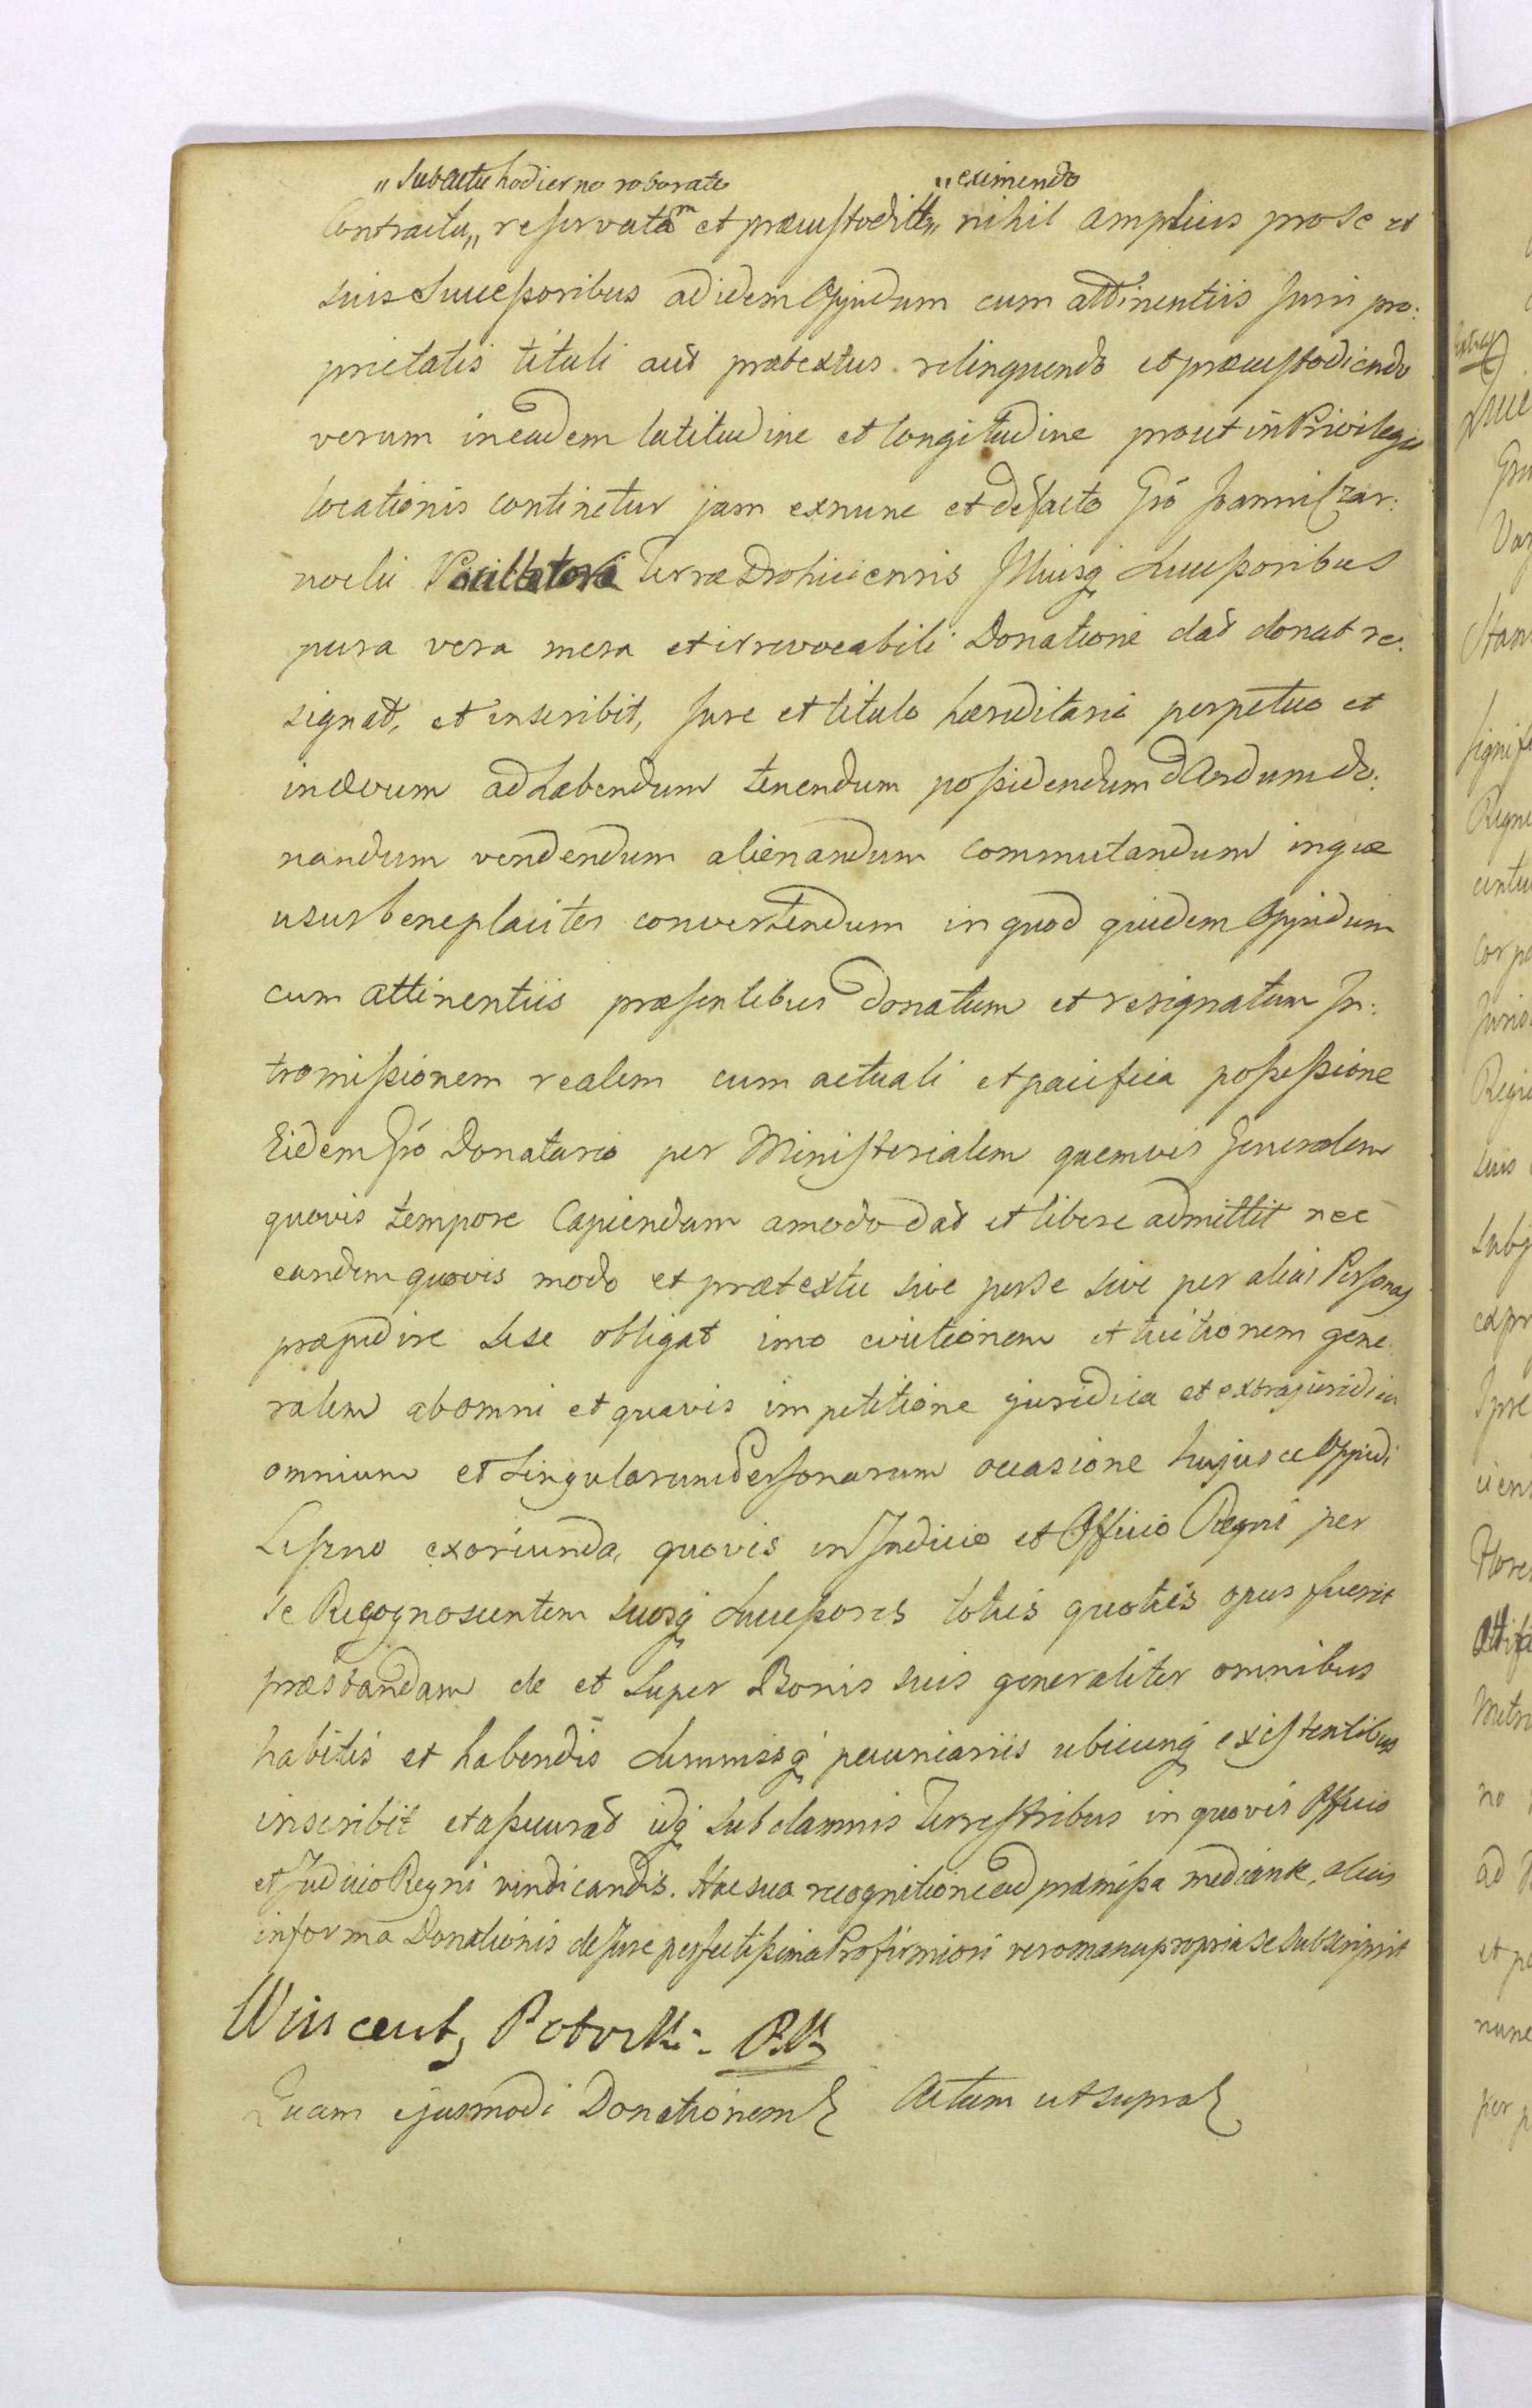 „Sub actu hodierno roborato „eximendo
Contractu„ reservatam et præcustoditam„ nihil amplius pro se et
suis Successoribus ad idem Oppidum cum attinentiis Juris pro:
prietatis tituli aut prætextus relinquendo et præcustodiendo
verum in eadem latitudine et longitudine prout in Privilegio
locationis continetur jam exnunc et de facto Gſo Joanni Czar:
nockii Vexillatori Terræ Drohiciensis Illiusq Successoribus
pura vera mera et irrevocabili Donatione dat donat re:
signat, et inscribit, Jure et titulo hæreditario perpetuo et
in ævum ad habendum tenendum possidendum dandum do:
nandum vendendum alienandum commutandum inque
usus beneplacitos convertendum in quod quidem Oppidum
cum attinentiis præsentibus donatum et resignatum In:
tromissionem realem cum actuali et pacifica possessione
Eidem Gſo Donatario per Ministerialem quemvis Generalem
quovis tempore Capiendam amodo dat et libere admittit nec
eandem quovis modo et prætextu sive per se sive per alias Personas
præpedire sese obligat imo evictionem et tuitionem gene:
ralem ab omni et quavis impetitione juridica et extrajuridica
omnium et Singularum Personarum occasione hujusce Oppidi
Leszno exoriunda, quovis in Judicio et Officio Regni per
se Recognoscentem suosq Successores toties quoties opus fuerit
præstandam de et Super Bonis suis generaliter omnibus
habitis et habendis Summisq pecuniariis ubicunq existentibus
inscribit et assecurat idq sub damnis Terrestribus in quovis Officio
et Judicio Regni vindicandis. Hac sua recognitione ad præmissa mediante, alias
in forma Donationis de Jure perfectissima Pro firmiori vero manu propria se subscripsit
Wincenty Potocki. PK
Quam ejusmodi Donationem Actum ut supra